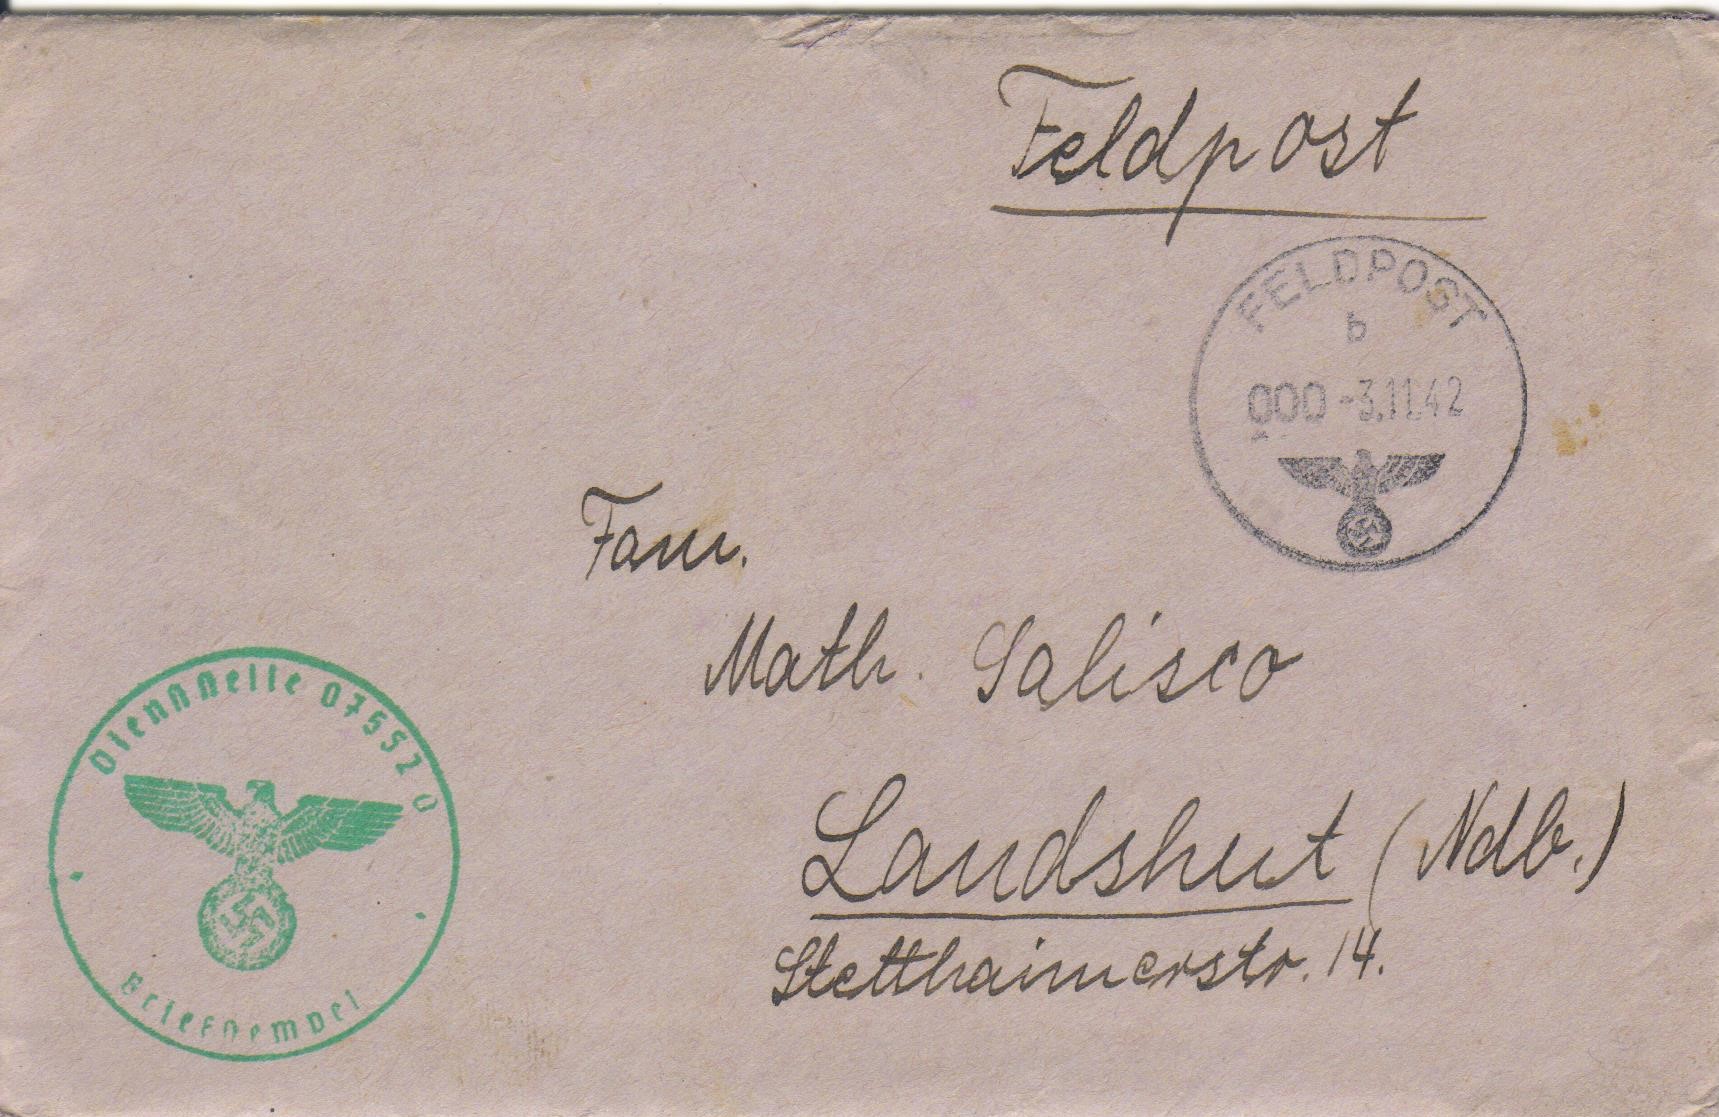 Feldpost
FELDPOST
b
000 -3.11.42
Fam.
Math. Salisco
Landshut (Ndb.)
Stetthaimerstr. 14.
Dienststelle 07552 D
Briefstempel